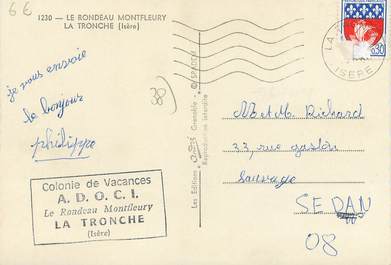 6€
1230 — LE RONDEAU MONTFLEURY
LA TRONCHE (Isère)
je vous envoie
le bonjour
philippe
38)
Colonie de Vacances
A. D. O. C. I.
Le Rondeau Montfleury
LA TRONCHE
(Isère)
Les Editions
Grenoble - © SPADEM
Reproduction interdite
LA
ISÈRE
0,30
M et M. Richard
33, rue gaston
Sauvage
SEDAN
08